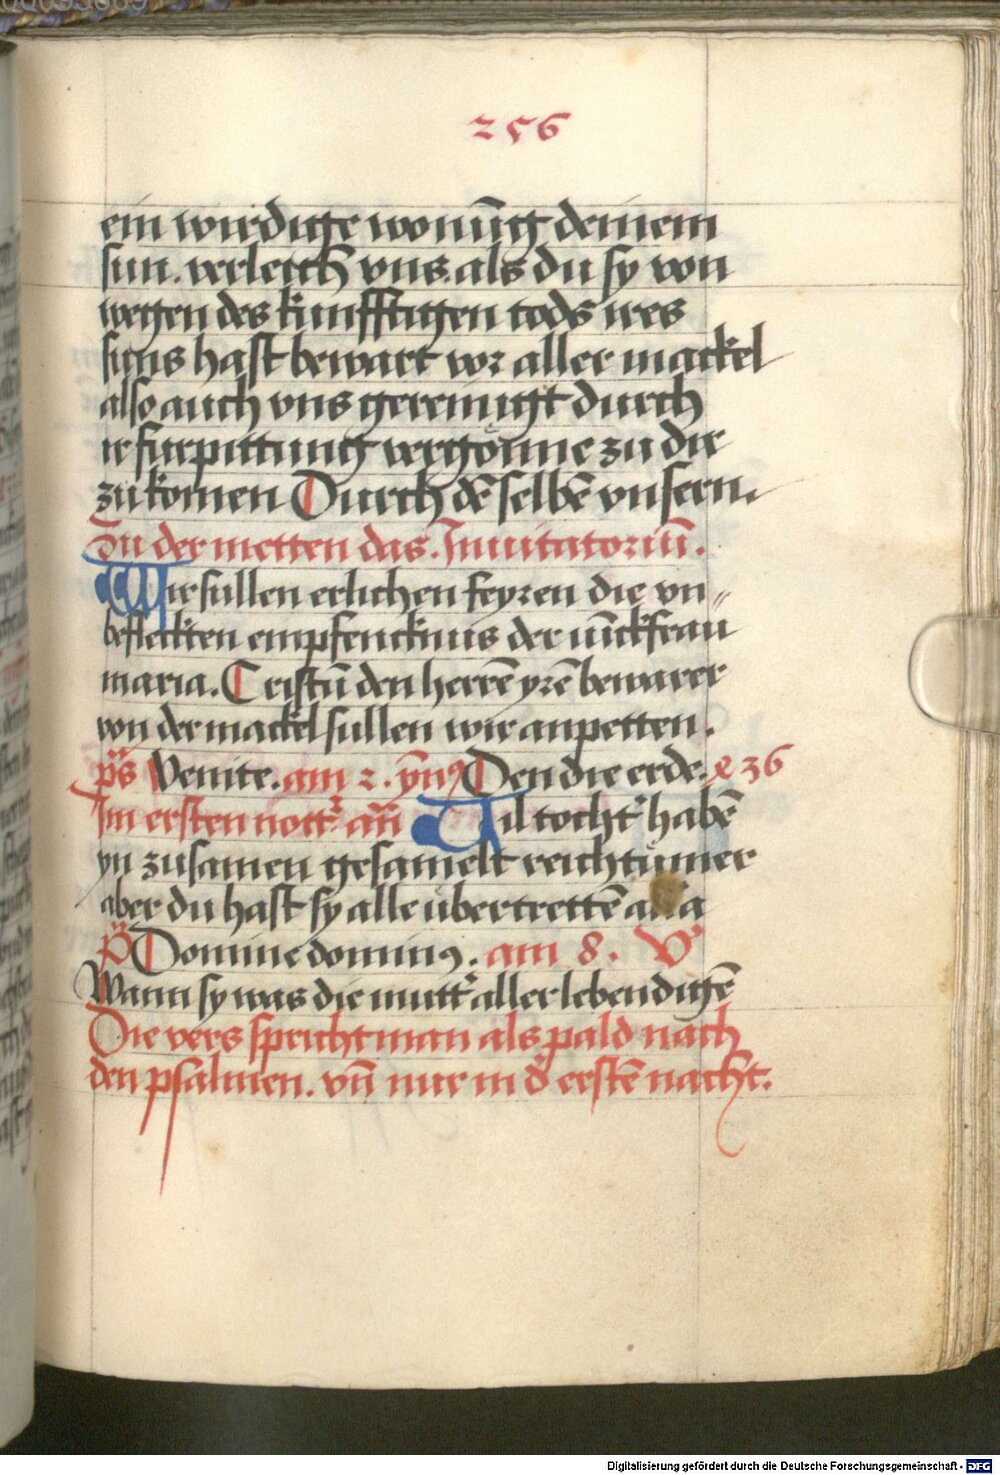 256
ein wirdige wonūg deinem
sun. verleich vns. als du sy von
wegen des kunfftigen tods ires
suns hast bewart vor aller mackel
also auch vns gereinigt durch
ir furpittung vergönne zu dir
zu komen Durch dē selbē vnsern.
Zu der metten das. Inuitatoriū.
Wir sullen erlichen feyren die vn„
befleckten empfencknus der iūckfrau
maria. Cristū den herrē yrē bewarer
von der mackel sullen wir anpetten.
ps Venite. am 2. ymꝰ Den die erde. 236
Im ersten nott͛ añ Uil tocht͛ habē
yn zusamen gesamelt reichtümer
aber du hast sy alle übertrettē
Domine dominꝰ. am 8. V
Wann sy was die mutt͛ aller lebendigē
Die vers spricht man als pald nach
den psalmen. vn̄ nur in d͛ erstē nacht.
Digitalisierung gefördert durch die Deutsche Forschungsgemeinschaft - DFG